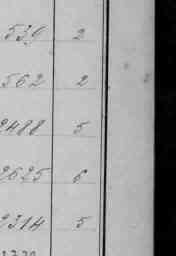 539 2
562 2
2488 5
2625 6
2314 5